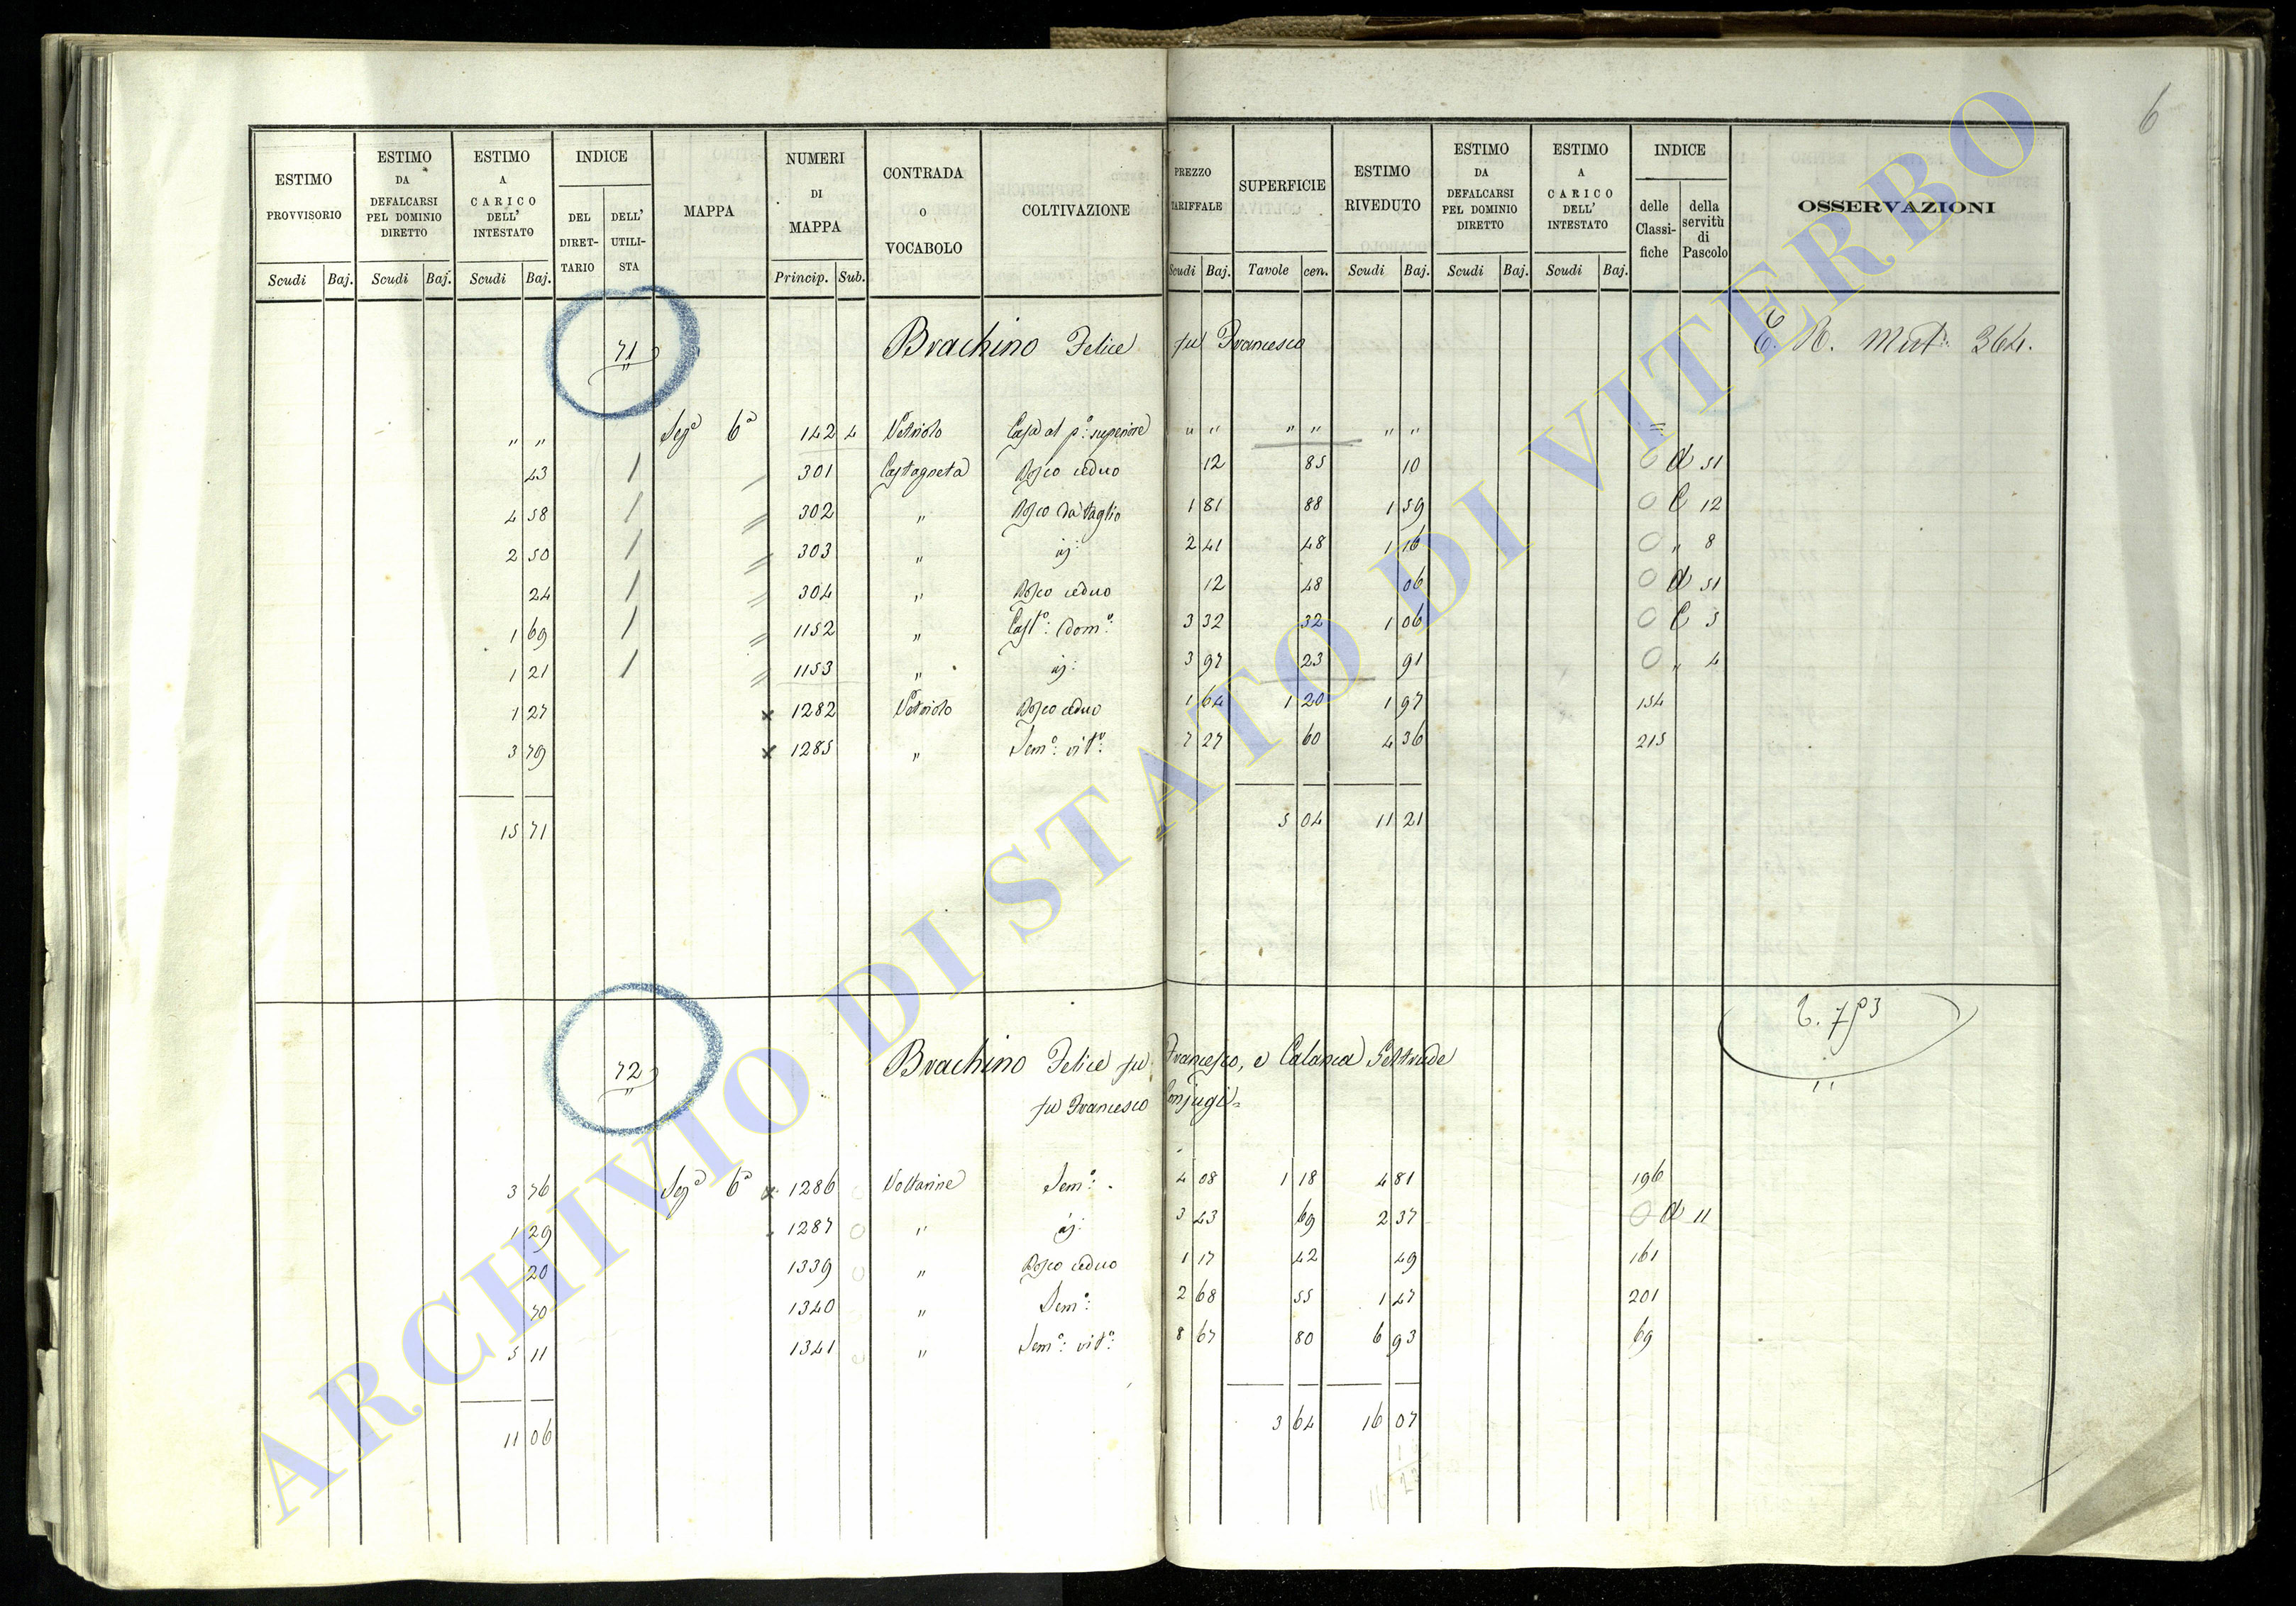 6
ESTIMO PROVVISORIO | ESTIMO DA DEFALCARSI PEL DOMINIO DIRETTO | ESTIMO A CARICO DELL' INTESTATO | INDICE | MAPPA | NUMERI DI MAPPA | CONTRADA O VOCABOLO | COLTIVAZIONE | PREZZO TARIFFALE | SUPERFICIE | ESTIMO RIVEDUTO | ESTIMO DA DEFALCARSI PEL DOMINIO DIRETTO | ESTIMO A CARICO DELL' INTESTATO | INDICE | OSSERVAZIONI
DEL DIRETTARIO | DELL' UTILISTA | delle Classifiche | della servitù di Pascolo
Scudi | Baj. | Scudi | Baj. | Scudi | Baj. | Princip. | Sub. | Scudi | Baj. | Tavole | cen. | Scudi | Baj. | Scudi | Baj. | Scudi | Baj.
71 Brachino Felice fu Francesco E. R. Mut. 364.
" " Sez.e 6a 142 4 Vetriolo Casa al p.o superiore " " " " " " =
23 1 301 Castagneta Bosco ceduo 12 85 10 0 d 51
4 58 1 302 " Bosco da taglio 1 81 88 1 59 0 C 12
2 50 1 303 " id: 2 41 48 1 16 0 " 8
24 1 304 " Bosco ceduo 12 48 06 0 d 51
1 69 1 1152 " Cast.o: dom.o: 3 32 32 1 06 0 C 5
1 21 1 1153 " id: 3 97 23 91 0 " 4
1 27 x 1282 Vetriolo Bosco ceduo 1 64 1 20 1 97 154
3 79 x 1285 " Sem.o: vit.o: 7 27 60 4 36 215
15 71 5 04 11 21
72 Brachino Felice fu Francesco, e Calanca Geltrude
fu Francesco Conjugi=
3 76 Sez.e 6a x 1286 Voltarine Sem.o: 4 08 1 18 4 81 196
1 29 1287 0 " id: 3 43 69 2 37 0 d 11
20 1339 0 " Bosco ceduo 1 17 42 49 161
70 1340 " Sem.o: 2 68 55 1 47 201
5 11 1341 0 " Sem.o: vit.o: 8 67 80 6 93 69
11 06 3 64 16 07
ARCHIVIO DI STATO DI VITERBO